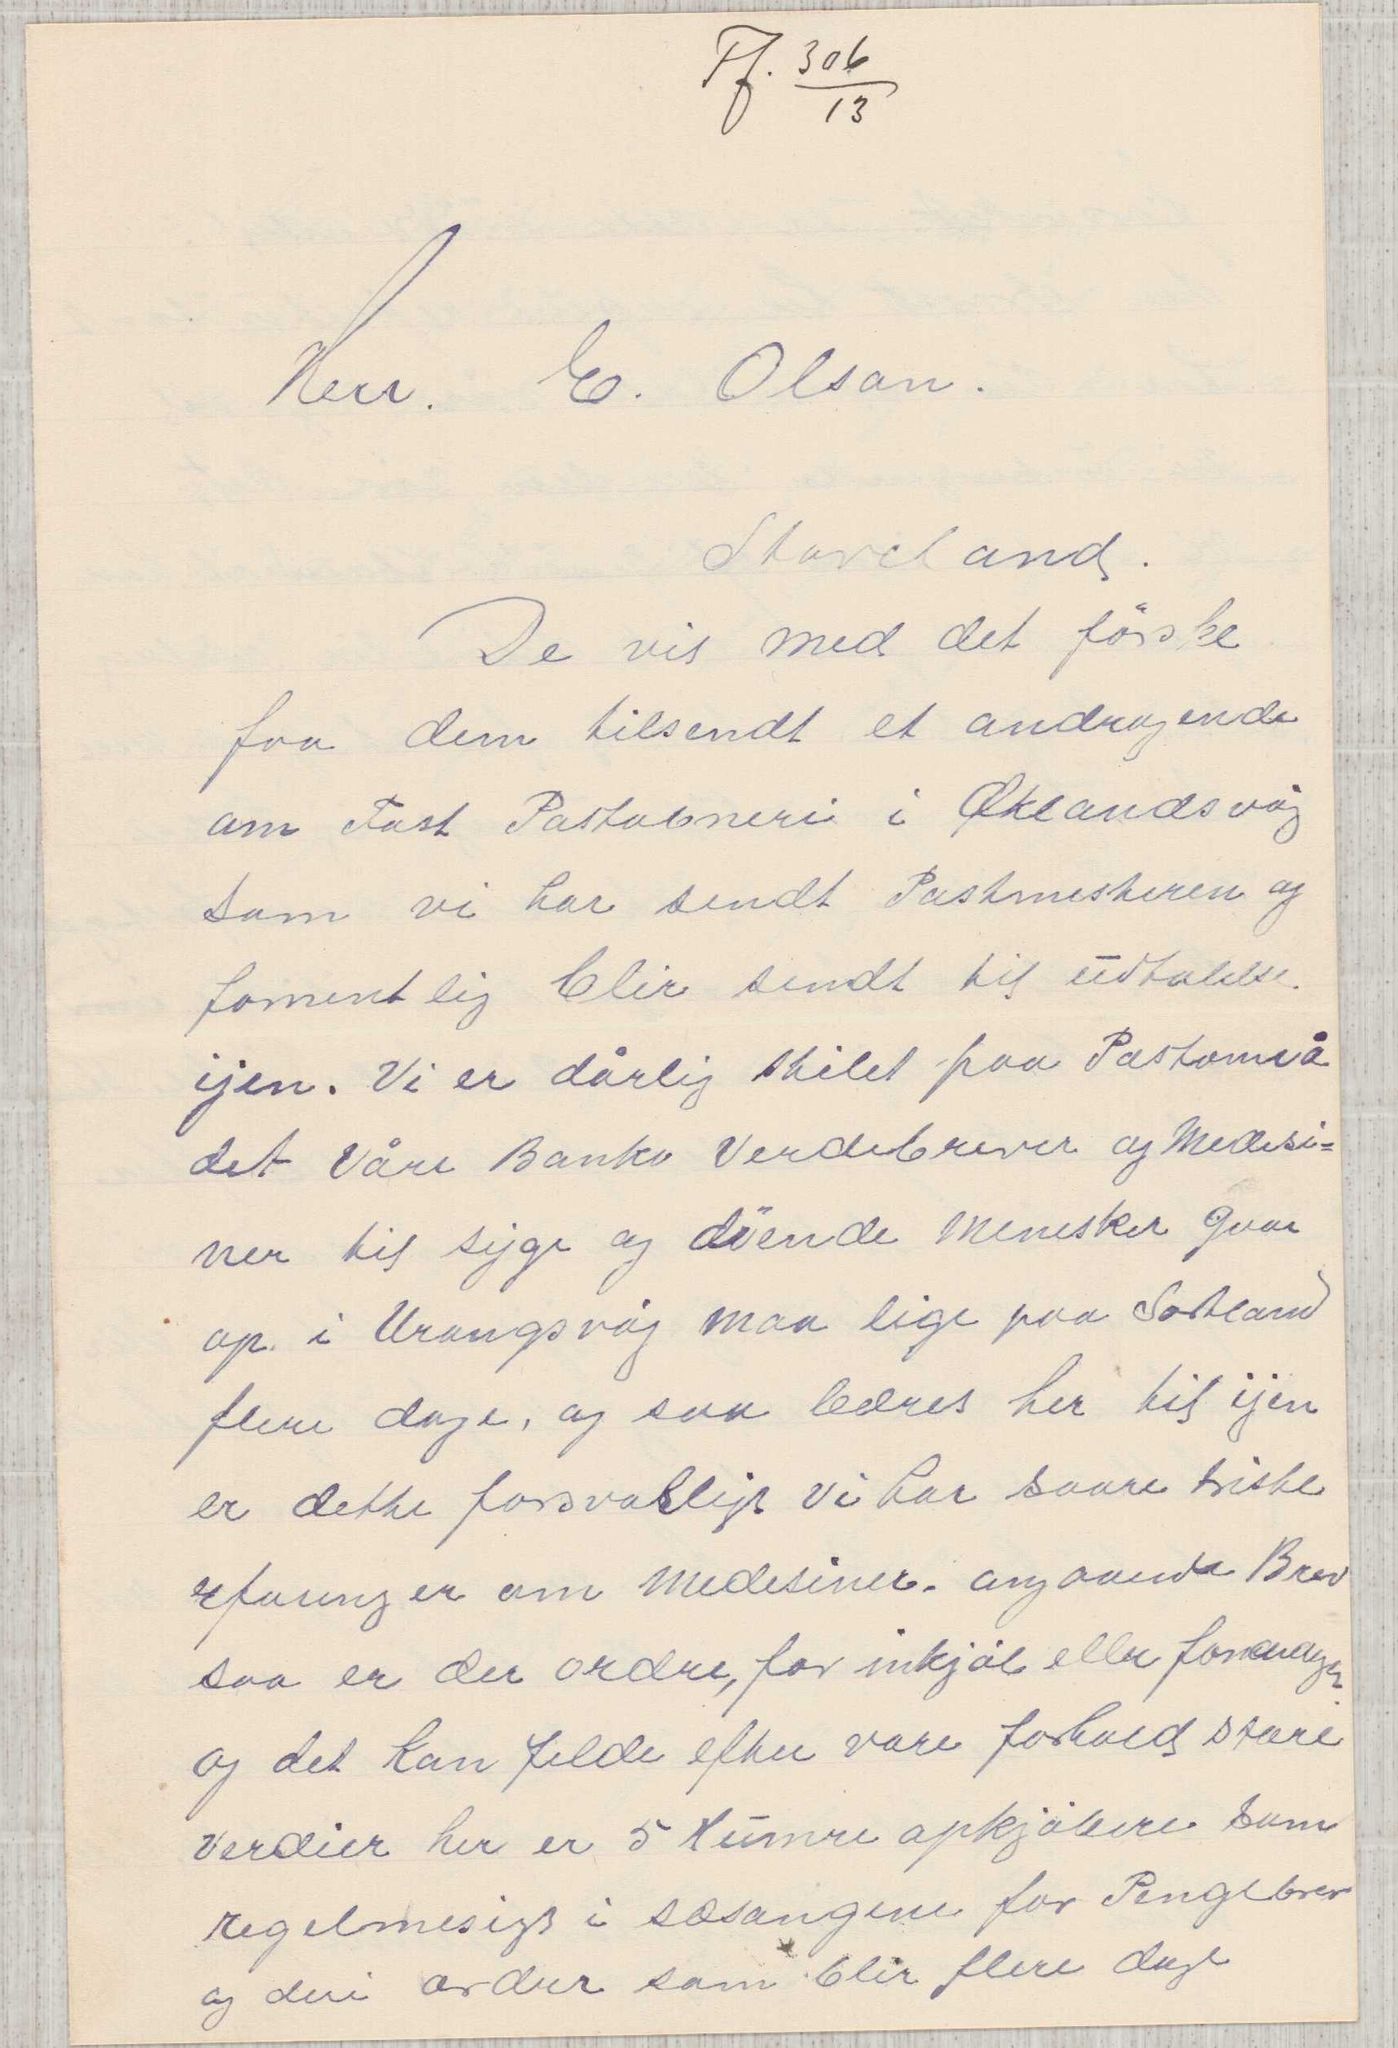 Ff. 306
13
Herr. E. Olsen.
Storeland.
De vil med det förske
faa dem tilsendt et andragende
om Fast Postabneri i Økelandsvåg
som vi har sendt Postmesteren og
fomentlig blir sendt til üdtalelse
ijen. Vi er dårlig stilet paa Postområ
det Våre Banko Verdebrever og Medesi=
ner til syge og döende Menesker gaar
op. i Urangsvåg maa lige paa Sortland
flere dage, og saa bæres her til ijen
er dette forsvarligt vi har saare triste
erfaringer om Medesiner. angaaende Brev
saa er der ordre, for inkjöb eller
og det kan jelde efter vore forhold store
verdier her er 5 Hümre opkjöbere som
regelmesigt i sæsongene for Pengebrev
og deri ordrer som blir flere dage